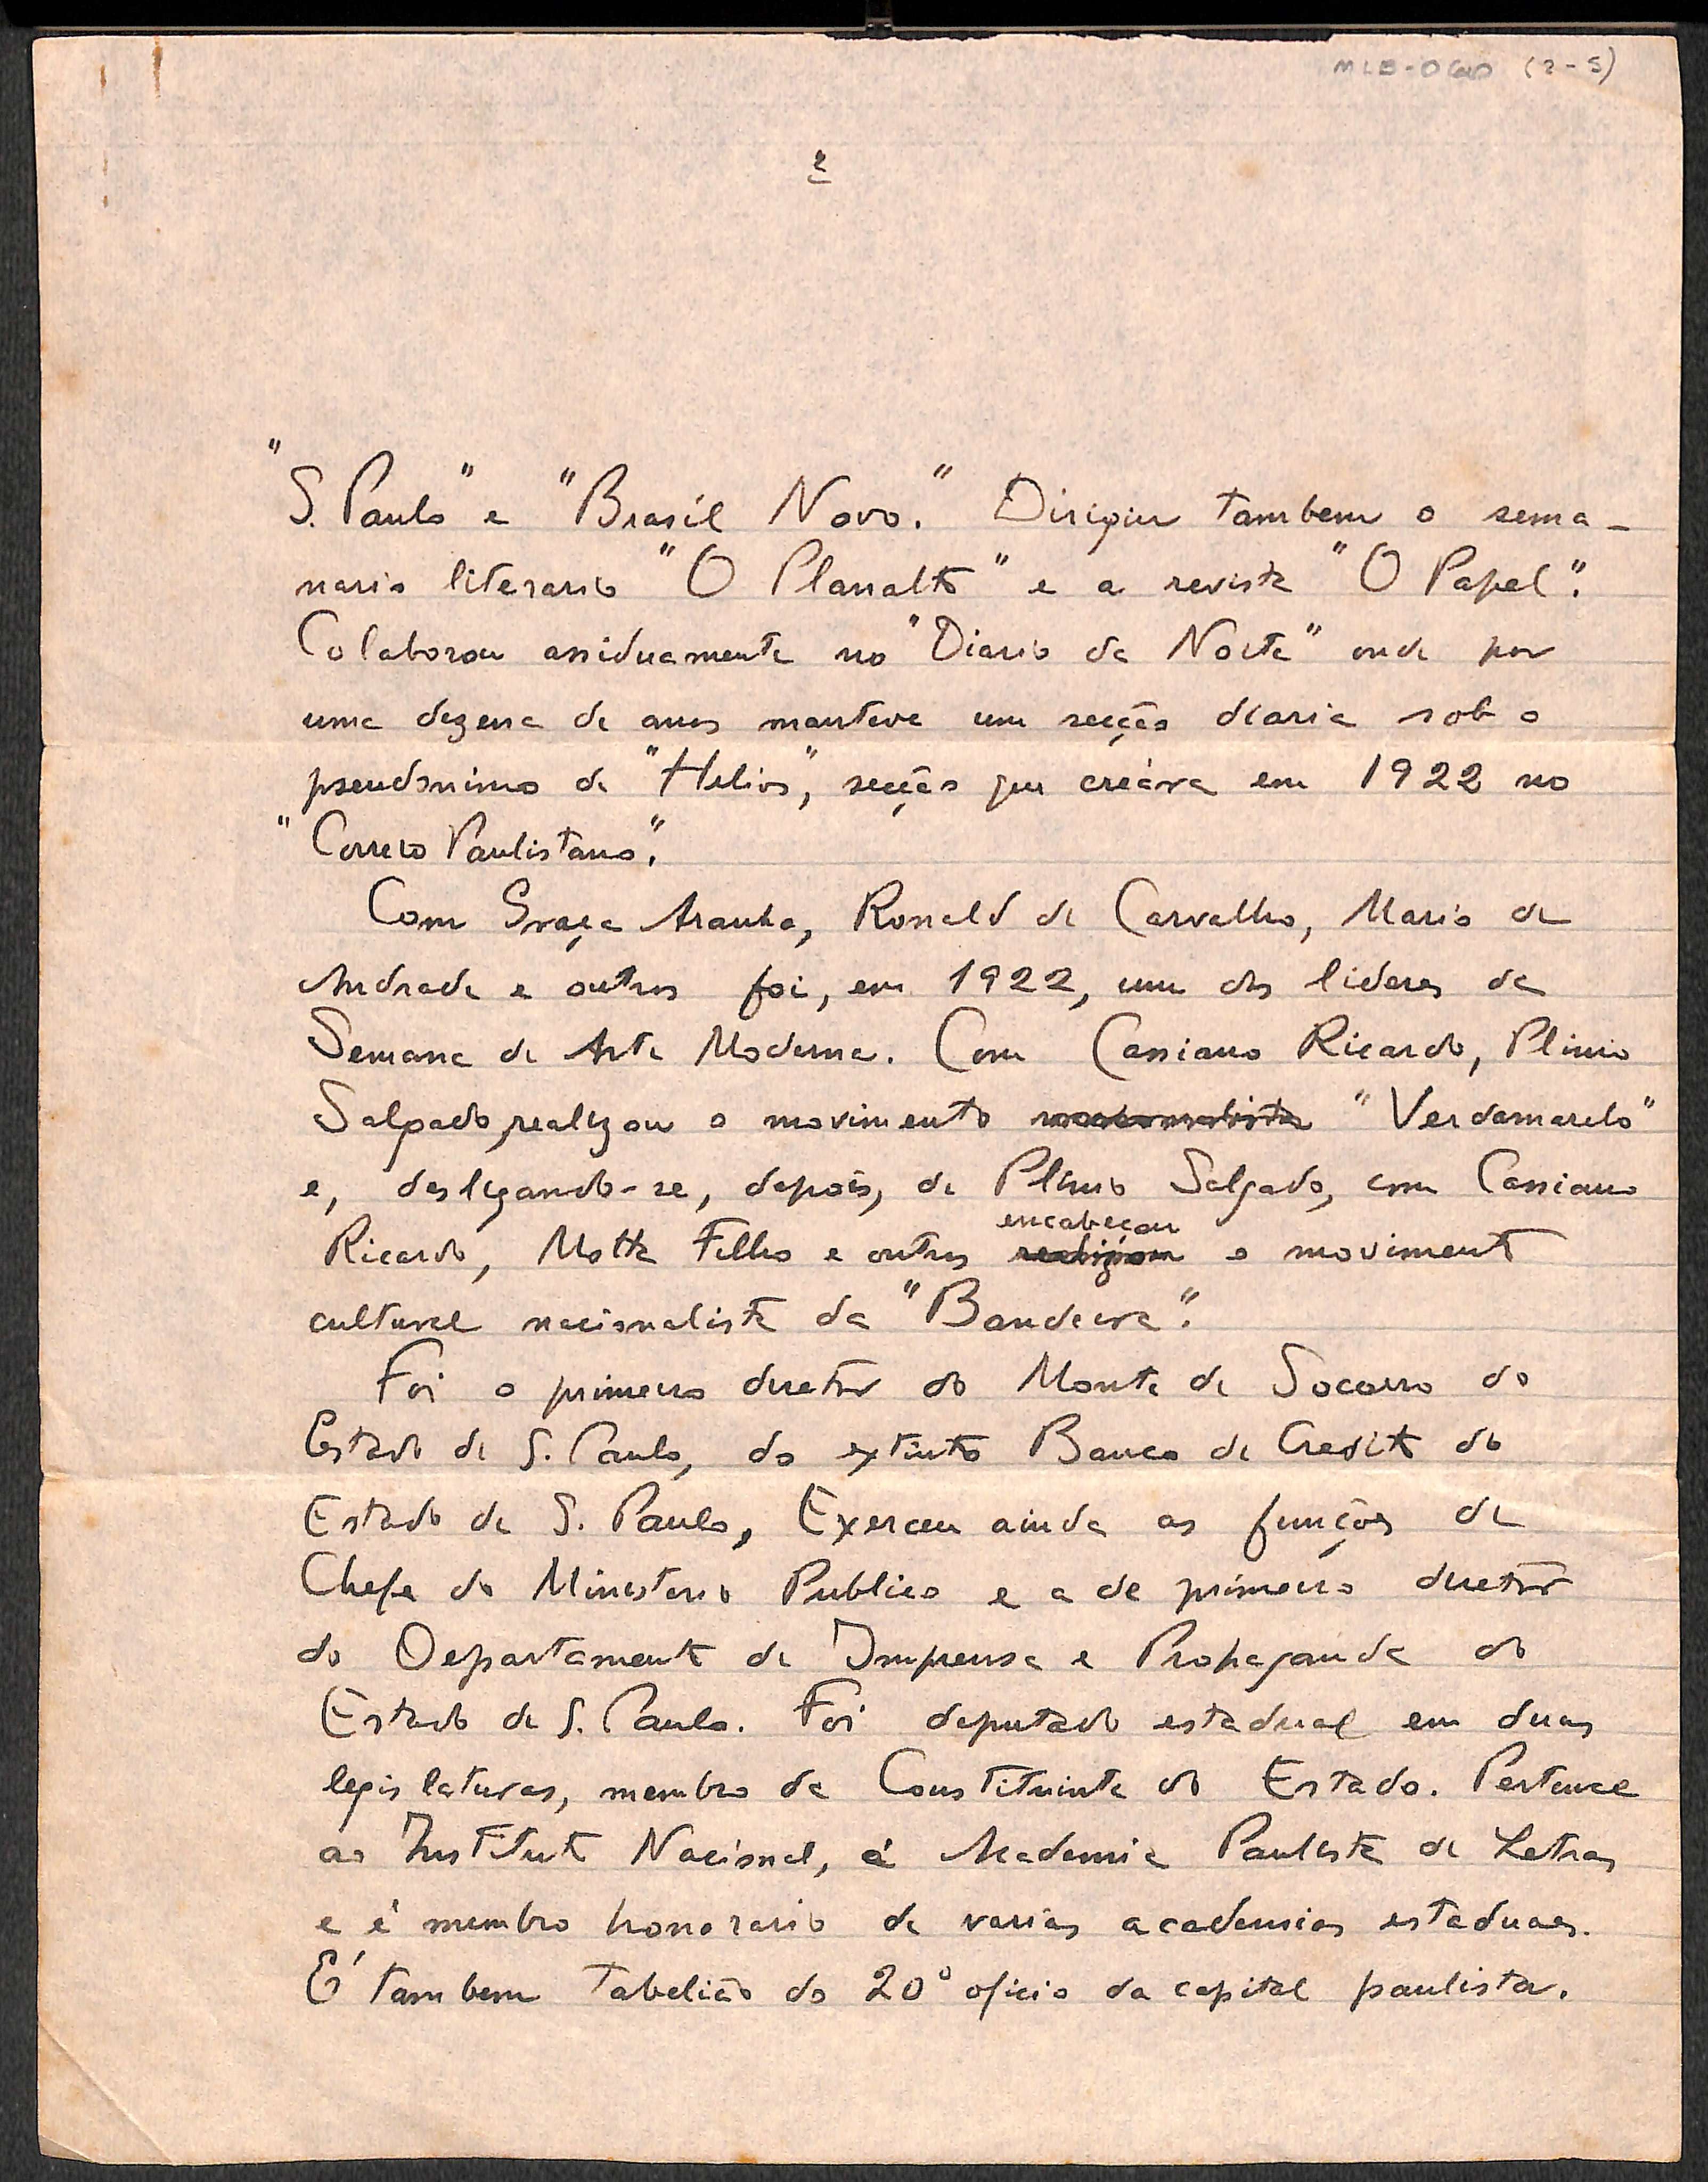 (2-5)
2
"S. Paulo" e "Brasil Novo." Dirigiu tambem o sema-
nario literario "O Planalto" e a revista "O Papel".
Colaborou assiduamente no "Diario da Noite" onde por
uma dezena de anos manteve um secção diaria sob o
pseudonimo de "Helios", secção que creára em 1922 no
"Correio Paulistano".
Com Graça Aranha, Ronald de Carvalho, Mario de
Andrade e outros foi, em 1922, um dos lideres da
Semana de Arte Moderna. Com Cassiano Ricardo, Plinio
Salgado, realizou o movimento "Verdamarelo"
e, desligando-se, depois, de Plinio Salgado, com Cassiano
encabeçou
Ricardo, Motta Filho e outros realizou o movimento
cultural nacionalista da "Bandeira".
Foi o primeiro diretor do Monte de Socorro do
Estado de S. Paulo, do extinto Banco de Credito do
Estado de S. Paulo, Exerceu ainda as funções de
Chefe do Ministerio Publico e a de primeiro diretor
do Departamento de Imprensa e Propaganda do
Estado de S. Paulo. Foi deputado estadual em duas
legislaturas, membro da Constituinte do Estado. Pertence
ao Instituto Nacional, á Academia Paulista de Letras
e é membro honorario de varias academias estaduaes.
É tambem Tabelião do 20º oficio da capital paulista.